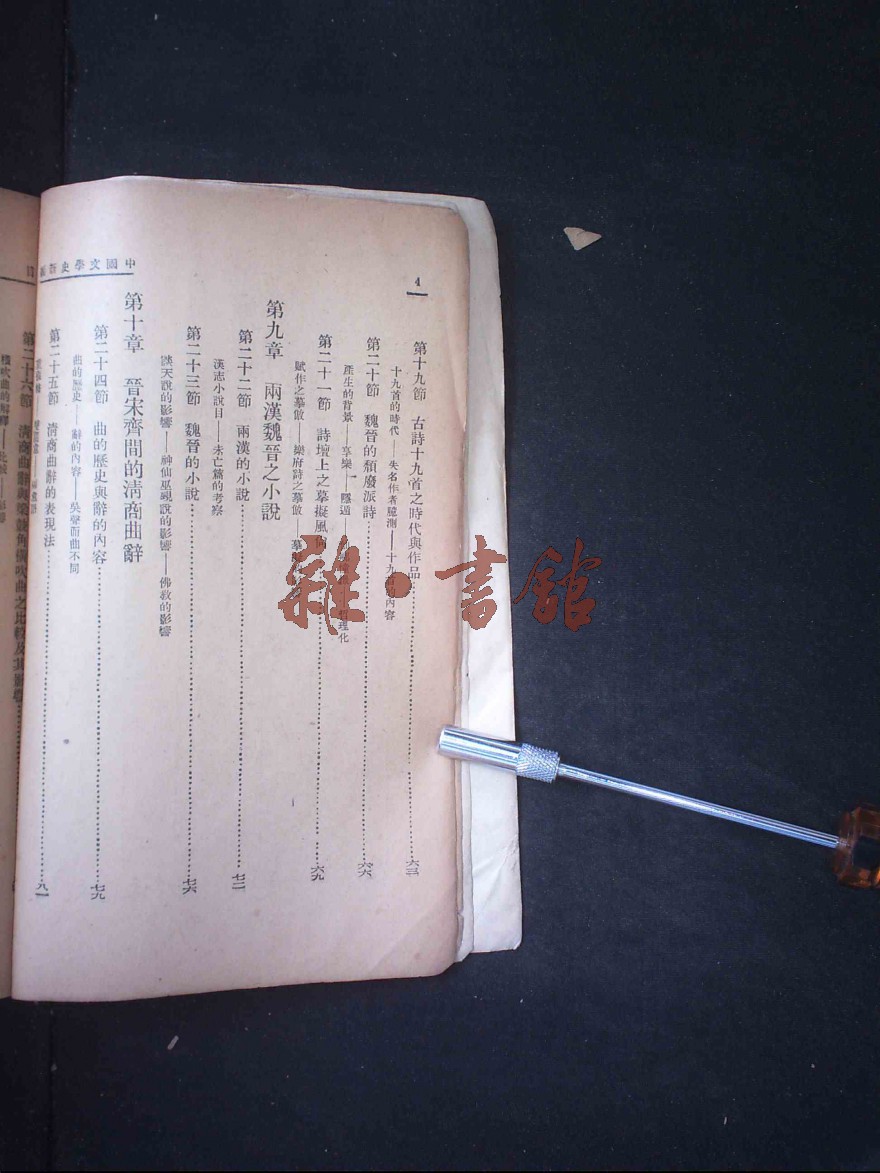 4
中國文學史新編
第十九節 古詩十九首之時代與作品……六三
十九首的時代——失名作者臆測——十九首 內容
第二十節 魏晉的頹廢派詩……六六
產生的背景——享樂——隱遁—— 哲理化
第二十一節 詩壇上之摹擬風 ……六九
賦作之摹倣——樂府詩之摹倣——摹
第九章 兩漢魏晉之小說
第二十二節 兩漢的小說……七二
漢志小說目——未亡篇的考察
第二十三節 魏晉的小說……七六
談天說的影響——神仙巫覡說的影響——佛教的影響
第十章 晉宋齊間的清商曲辭
第二十四節 曲的歷史與辭的內容……七九
曲的歷史——辭的內容——吳聲西曲不同
第二十五節 清商曲辭的表現法……八一
第二十六節 清商曲辭與梁鼓角橫吹曲之比較及其影響……
雜·書館